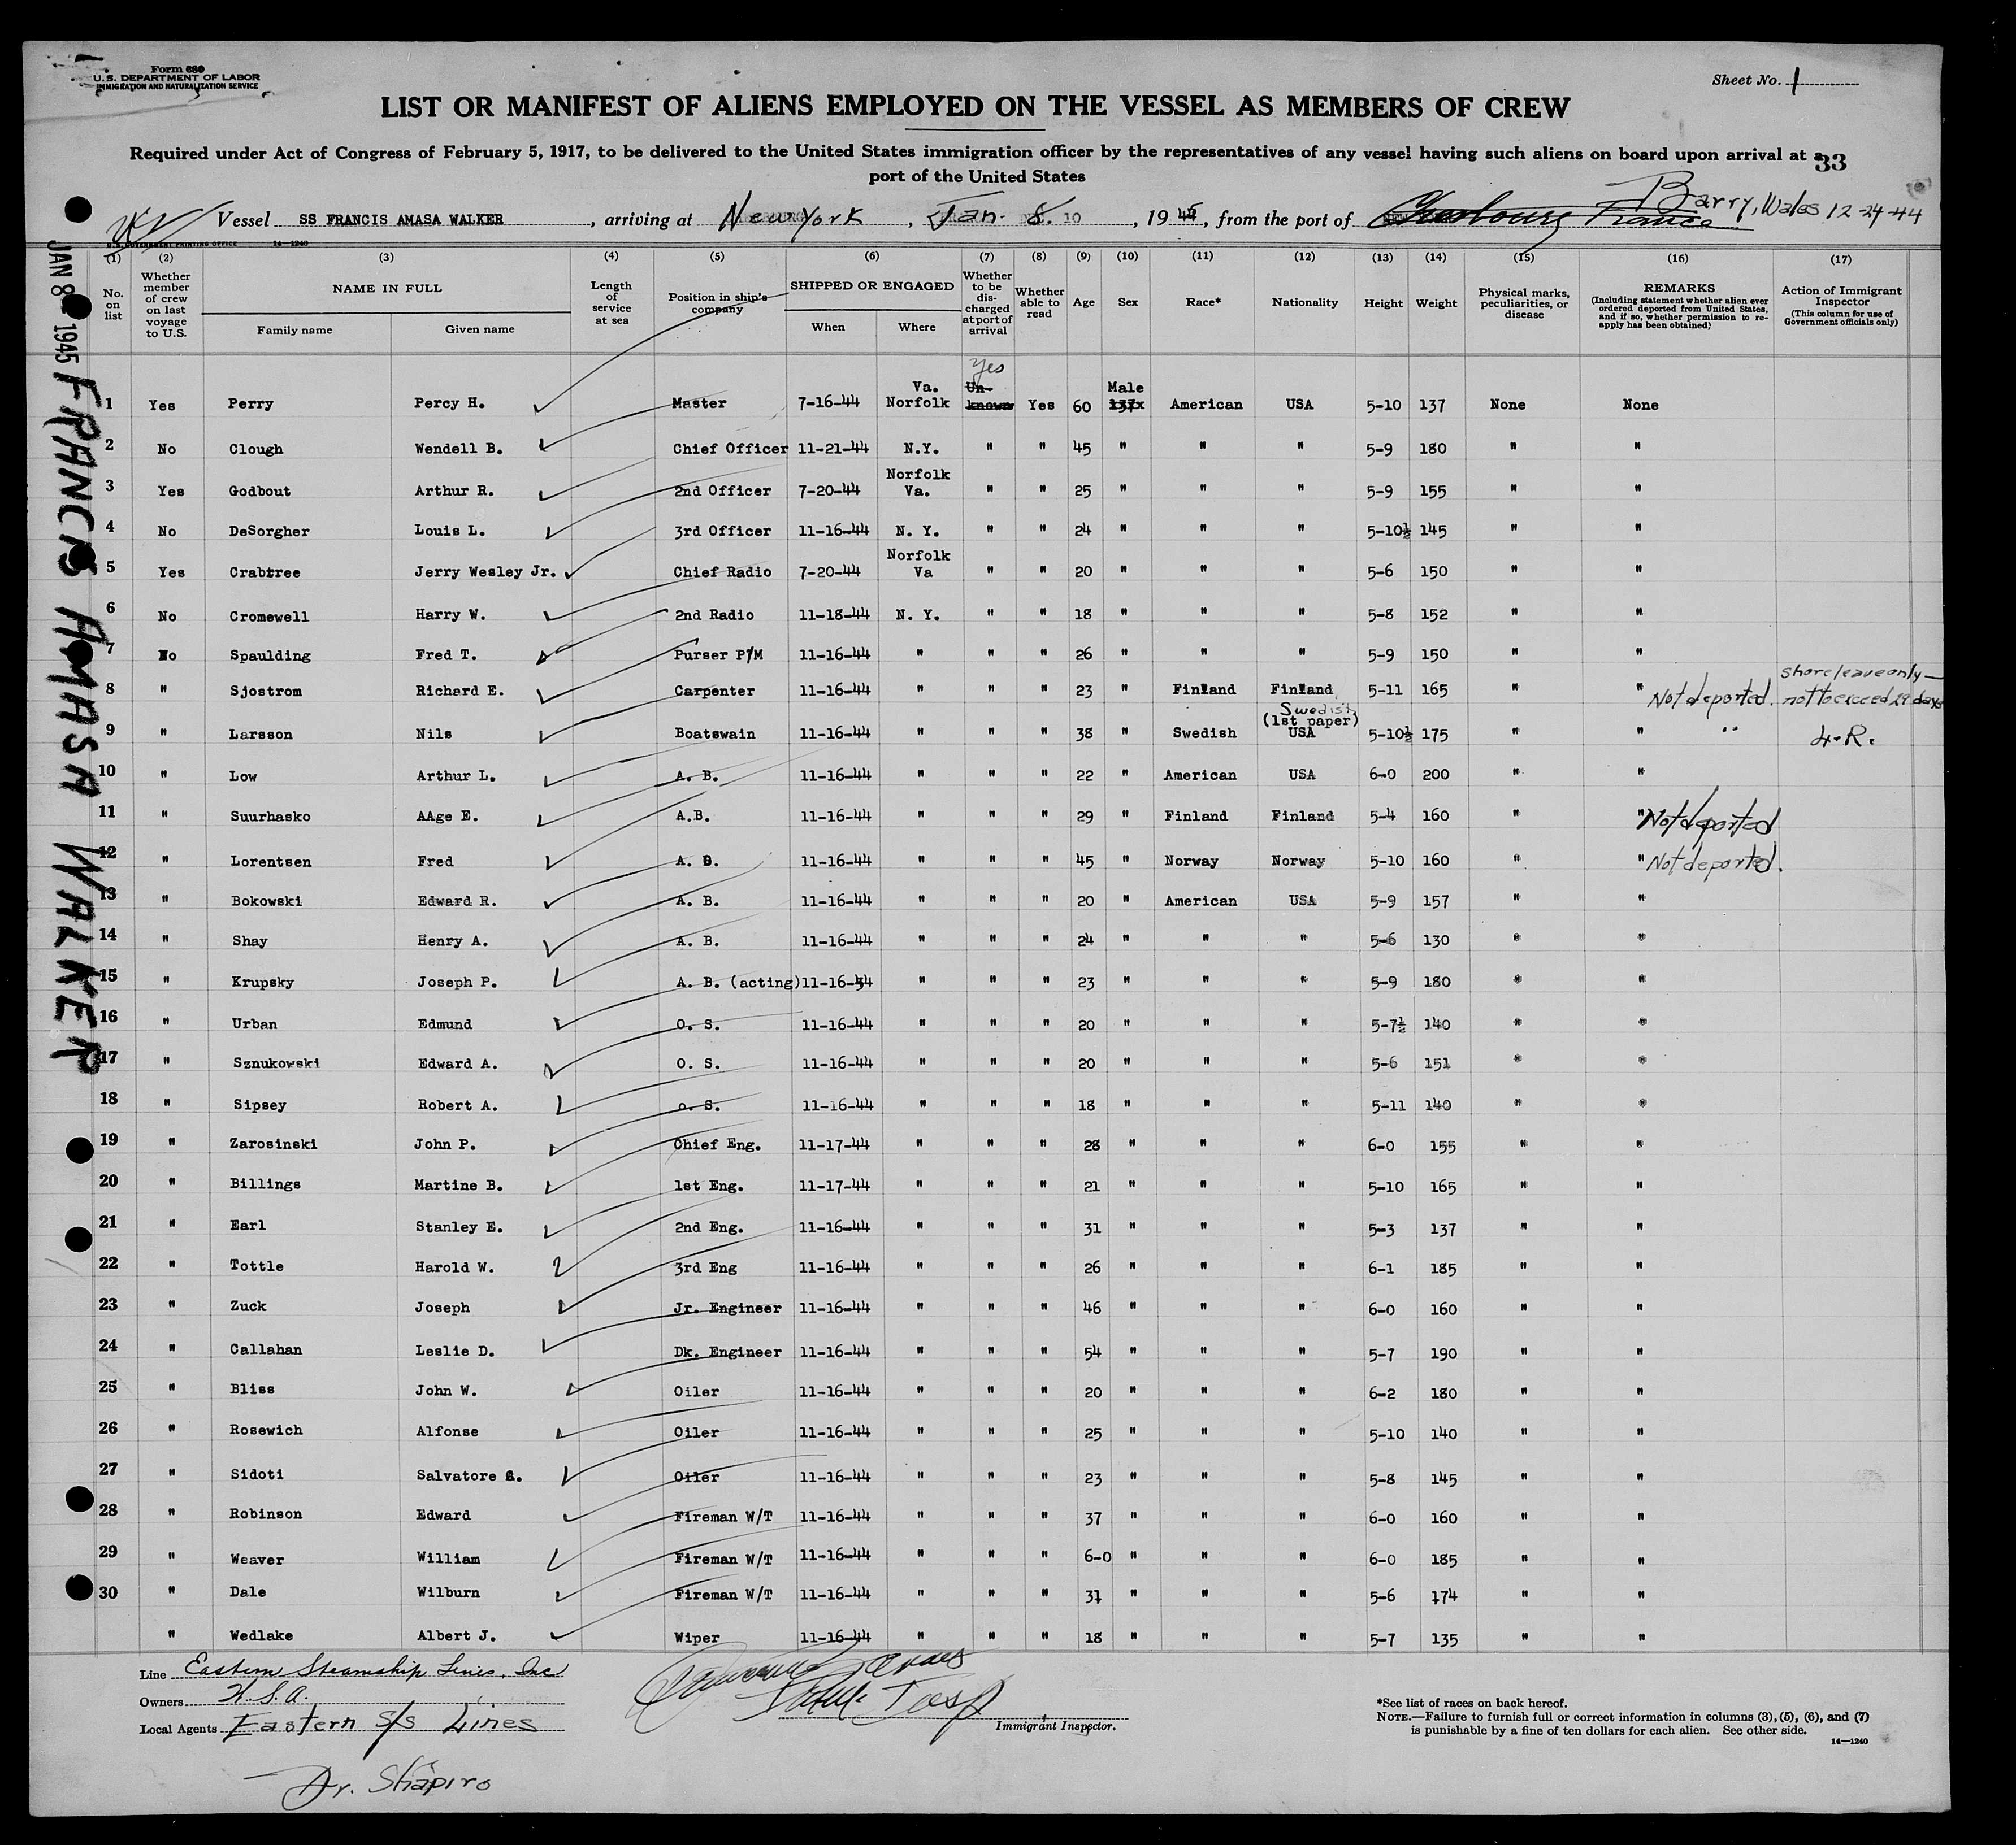 Form 680
U.S. DEPARTMENT OF LABOR
IMMIGRATION AND NATURALIZATION SERVICE
Sheet No. 1
LIST OR MANIFEST OF ALIENS EMPLOYED ON THE VESSEL AS MEMBERS OF CREW
Required under Act of Congress of February 5, 1917, to be delivered to the United States immigration officer by the representatives of any vessel having such aliens on board upon arrival at a
port of the United States
33
Vessel SS FRANCIS AMASA WALKER, arriving at New York, Jan. 8. 10, 1945, from the port of Cherbourg France Barry, Wales 12-24-44
U.S. GOVERNMENT PRINTING OFFICE 14-1240
JAN 8 1945
FRANCIS AMASA WALKER
(1) (2) (3) (4) (5) (6) (7) (8) (9) (10) (11) (12) (13) (14) (15) (16) (17)
No. on list
Whether member of crew on last voyage to U.S.
NAME IN FULL
Family name Given name
Length of service at sea
Position in ship's company
SHIPPED OR ENGAGED
When Where
Whether to be dis-charged at port of arrival
Whether able to read
Age
Sex
Race*
Nationality
Height
Weight
Physical marks, peculiarities, or disease
REMARKS
(Including statement whether alien ever ordered deported from United States, and if so, whether permission to re-apply has been obtained)
Action of Immigrant Inspector
(This column for use of Government officials only)
1 Yes Perry Percy H. Master 7-16-44 Va. Norfolk Yes Un-known Yes 60 Male 137x American USA 5-10 137 None None
2 No Clough Wendell B. Chief Officer 11-21-44 N.Y. " " 45 " " " 5-9 180 " "
3 Yes Godbout Arthur R. 2nd Officer 7-20-44 Norfolk Va. " " 25 " " " 5-9 155 " "
4 No DeSorgher Louis L. 3rd Officer 11-16-44 N. Y. " " 24 " " " 5-10½ 145 " "
5 Yes Crabtree Jerry Wesley Jr. Chief Radio 7-20-44 Norfolk Va " " 20 " " " 5-6 150 " "
6 No Cromewell Harry W. 2nd Radio 11-18-44 N. Y. " " 18 " " " 5-8 152 " "
7 No Spaulding Fred T. Purser P/M 11-16-44 " " " 26 " " " 5-9 150 " "
8 " Sjostrom Richard E. Carpenter 11-16-44 " " " 23 " Finland Finland 5-11 165 " " Not deported. shore leave only — not to exceed 29 days
9 " Larsson Nils Boatswain 11-16-44 " " " 38 " Swedish Swedish (1st paper) USA 5-10½ 175 " " " 4-R.
10 " Low Arthur L. A. B. 11-16-44 " " " 22 " American USA 6-0 200 " "
11 " Suurhasko AAge E. A.B. 11-16-44 " " " 29 " Finland Finland 5-4 160 " " Not deported
12 " Lorentsen Fred A. B. 11-16-44 " " " 45 " Norway Norway 5-10 160 " " Not deported.
13 " Bokowski Edward R. A. B. 11-16-44 " " " 20 " American USA 5-9 157 " "
14 " Shay Henry A. A. B. 11-16-44 " " " 24 " " " 5-6 130 " "
15 " Krupsky Joseph P. A. B. (acting) 11-16-44 " " " 23 " " " 5-9 180 " "
16 " Urban Edmund O. S. 11-16-44 " " " 20 " " " 5-7½ 140 " "
17 " Sznukowski Edward A. O. S. 11-16-44 " " " 20 " " " 5-6 151 " "
18 " Sipsey Robert A. o. S. 11-16-44 " " " 18 " " " 5-11 140 " "
19 " Zarosinski John P. Chief Eng. 11-17-44 " " " 28 " " " 6-0 155 " "
20 " Billings Martine B. 1st Eng. 11-17-44 " " " 21 " " " 5-10 165 " "
21 " Earl Stanley E. 2nd Eng. 11-16-44 " " " 31 " " " 5-3 137 " "
22 " Tottle Harold W. 3rd Eng 11-16-44 " " " 26 " " " 6-1 185 " "
23 " Zuck Joseph Jr. Engineer 11-16-44 " " " 46 " " " 6-0 160 " "
24 " Callahan Leslie D. Dk. Engineer 11-16-44 " " " 54 " " " 5-7 190 " "
25 " Bliss John W. Oiler 11-16-44 " " " 20 " " " 6-2 180 " "
26 " Rosewich Alfonse Oiler 11-16-44 " " " 25 " " " 5-10 140 " "
27 " Sidoti Salvatore Oiler 11-16-44 " " " 23 " " " 5-8 145 " "
28 " Robinson Edward Fireman W/T 11-16-44 " " " 37 " " " 6-0 160 " "
29 " Weaver William Fireman W/T 11-16-44 " " " 6-0 " " " 6-0 185 " "
30 " Dale Wilburn Fireman W/T 11-16-44 " " " 31 " " " 5-6 174 " "
" Wedlake Albert J. Wiper 11-16-44 " " " 18 " " " 5-7 135 " "
Line Eastern Steamship Lines, Inc
Owners W.S.A.
Local Agents Eastern S/S Lines
Immigrant Inspector.
*See list of races on back hereof.
NOTE.—Failure to furnish full or correct information in columns (3), (5), (6), and (7)
is punishable by a fine of ten dollars for each alien. See other side.
14-1240
Dr. Shapiro